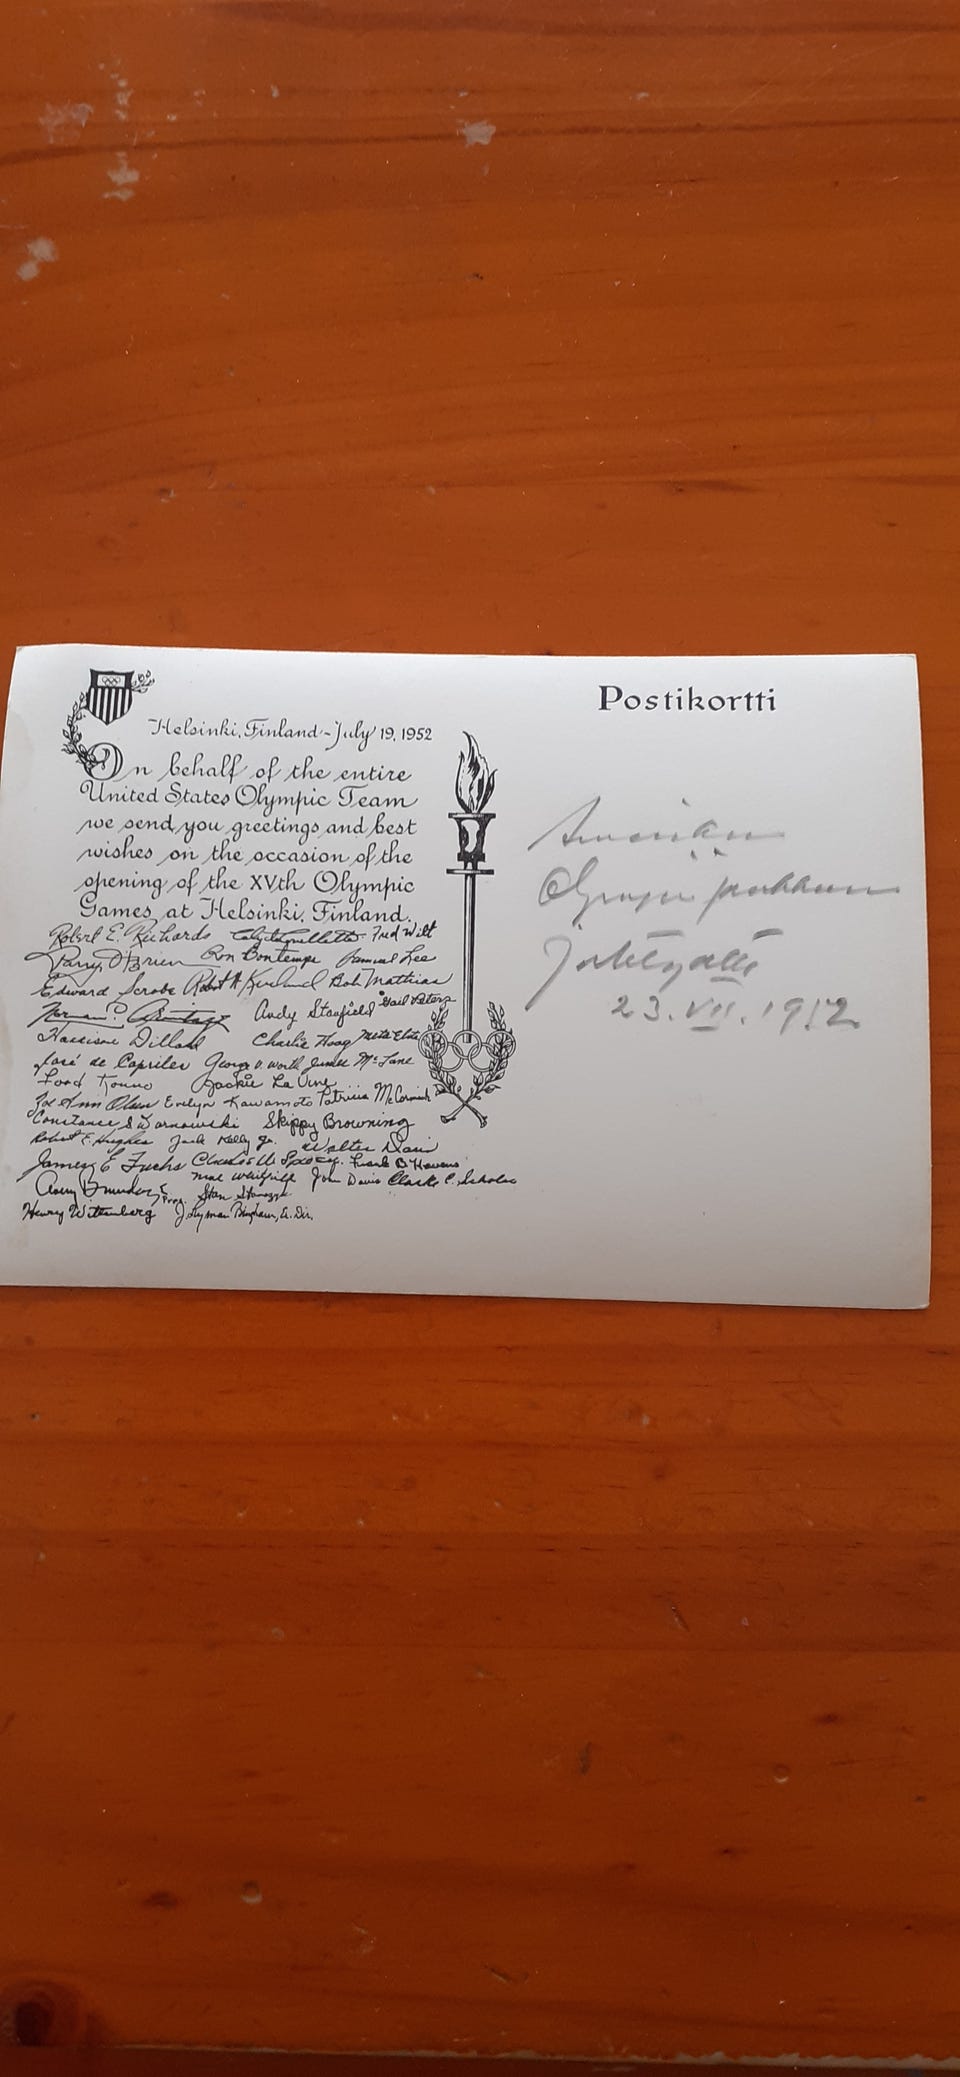 Helsinki, Finland - July 19, 1952
On behalf of the entire
United States Olympic Team
we send you greetings and best
wishes on the occasion of the
opening of the XVth Olympic
Games, at Helsinki, Finland.
Robert E. Richards Clyde Lovellette Fred Wilt
Parry O'Brien Ron Bontemps Samuel Lee
Edward Scrobe Robert H. Bob Mathias
Norman Armitage Andy Stanfield Gail Peters
Harrison Dillard Charlie Hoag Meta Elste
José de Capriles George V. Worth James McLane
Ford Konno Jackie La Vine
Zoe Ann Olsen Evelyn Kawamoto Patricia McCormick
Constance Skippy Browning
Robert E. Hughes Jack Kelly Jr. Walter Davis
James E. Fuchs Frank B Havens
Mal Whitfield John Davis Clarke C. Scholes
Avery Brundage Pres. Stan Stanczyk
Henry Wittenberg J. Lyman Bingham, Ex. Dir.
Postikortti
Amerikan
23.VII.1952